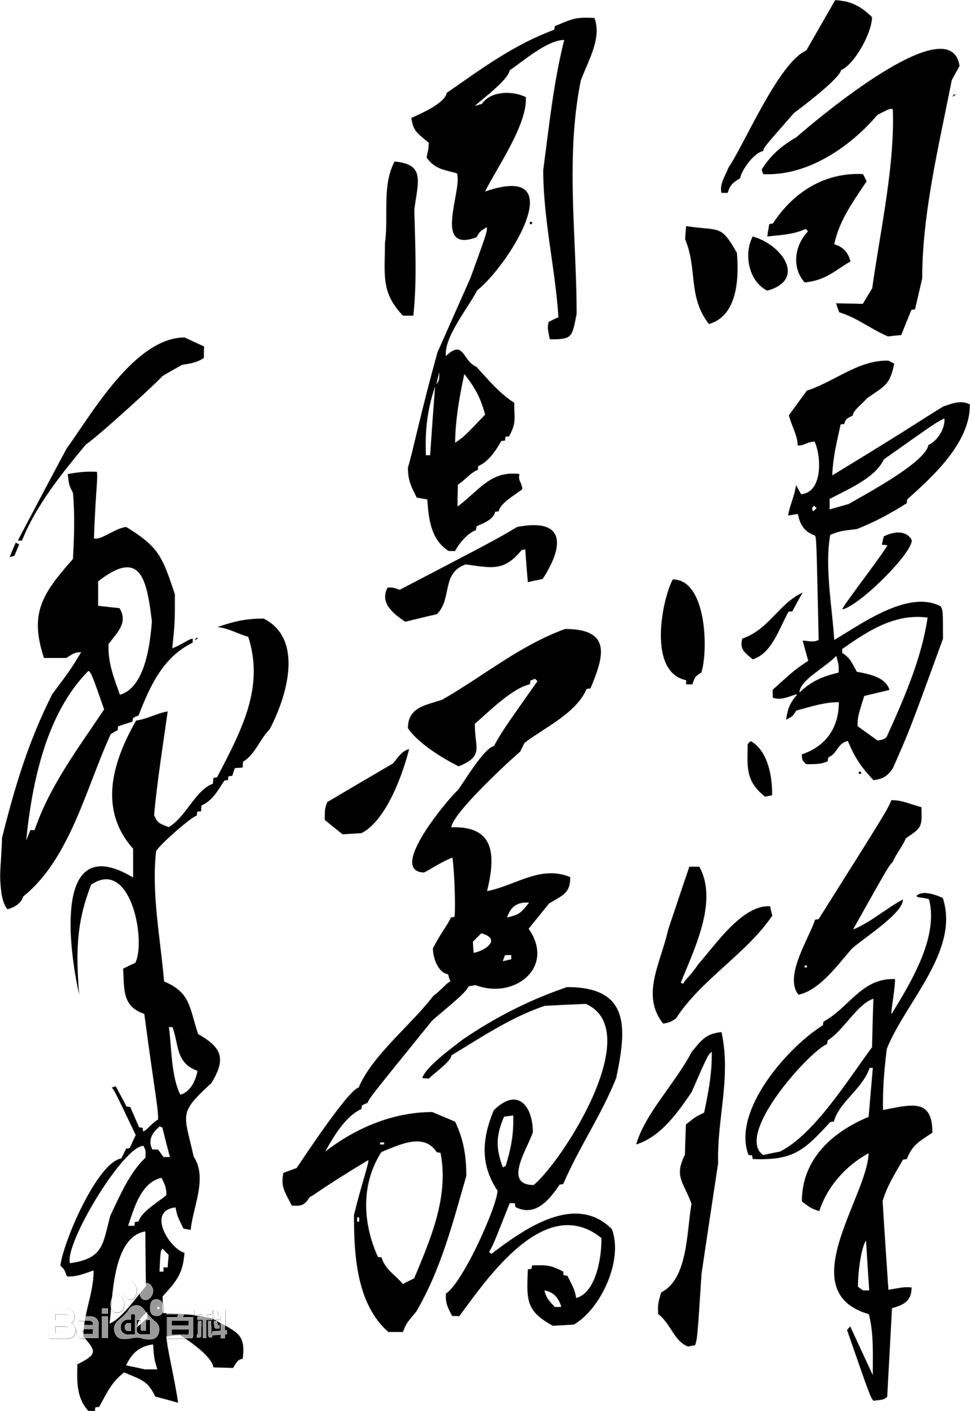 向雷锋
同志学习
毛泽东
Baidu百科